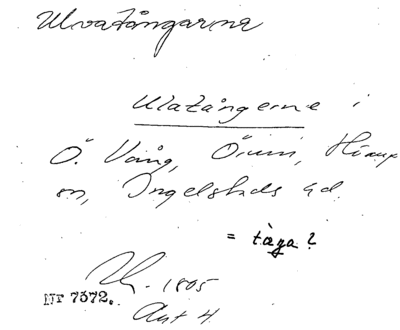 Ulvatångarna
Ulatångerne i
Ö. Vång, Örum, Hörup
sn, Ingelstads hd.
= tøga?
1805
Nr 7372.
Akt 4